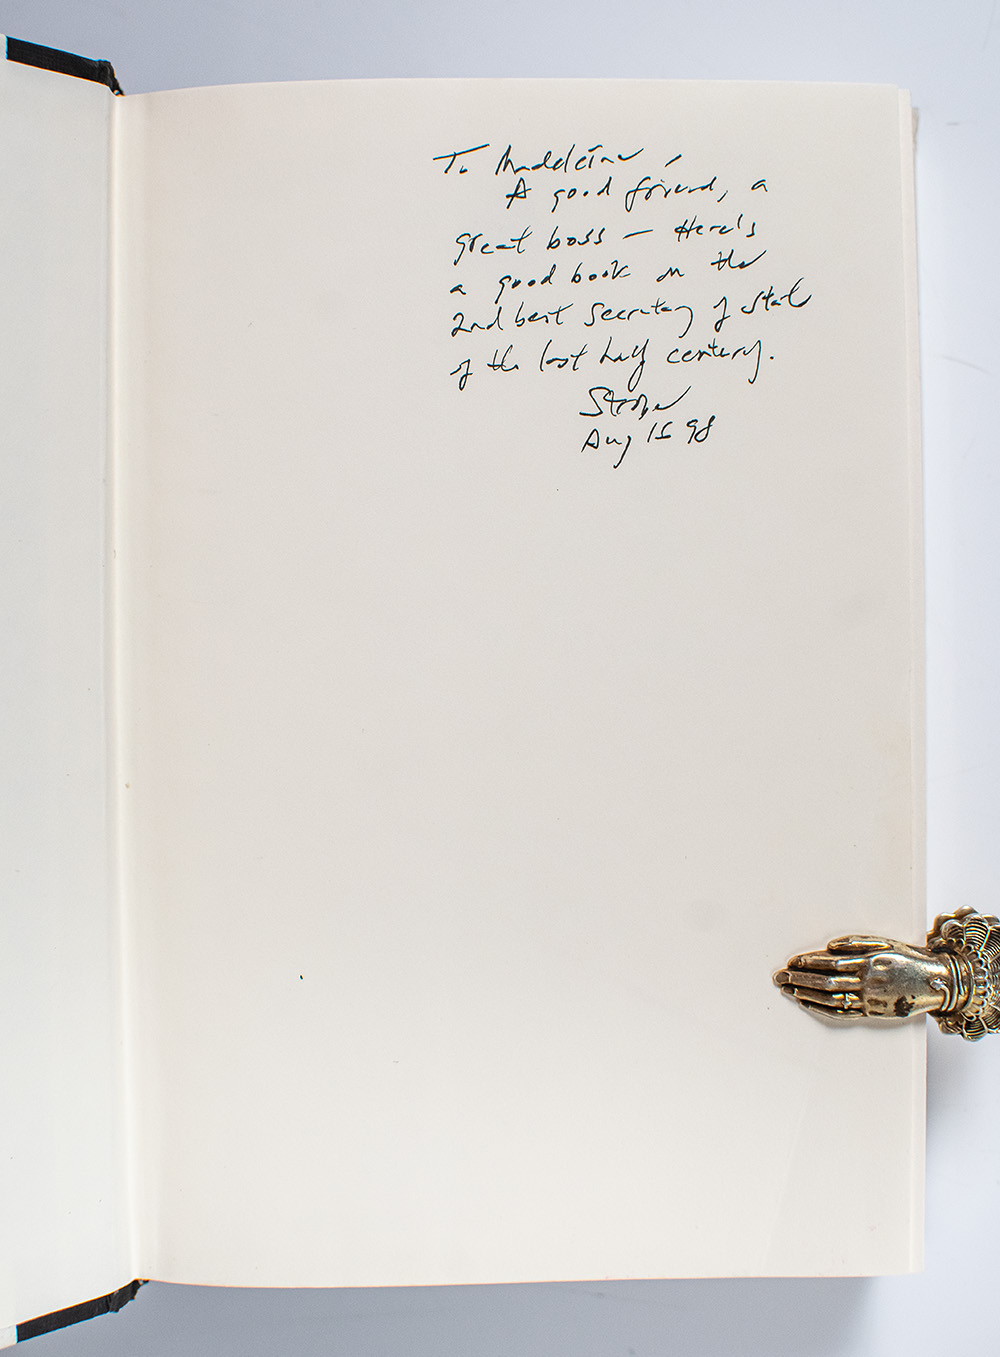 To Madeleine,
A good friend, a
great boss — Here's
a good book on the
2nd best Secretary of State
of the last half century.
Strobe
Aug 15 98